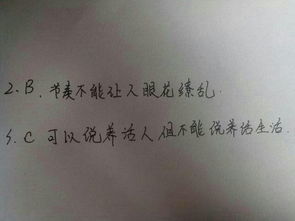 2、B、节奏不能让人眼花缭乱.
5、C 可以说养活人但不能说养活生活.